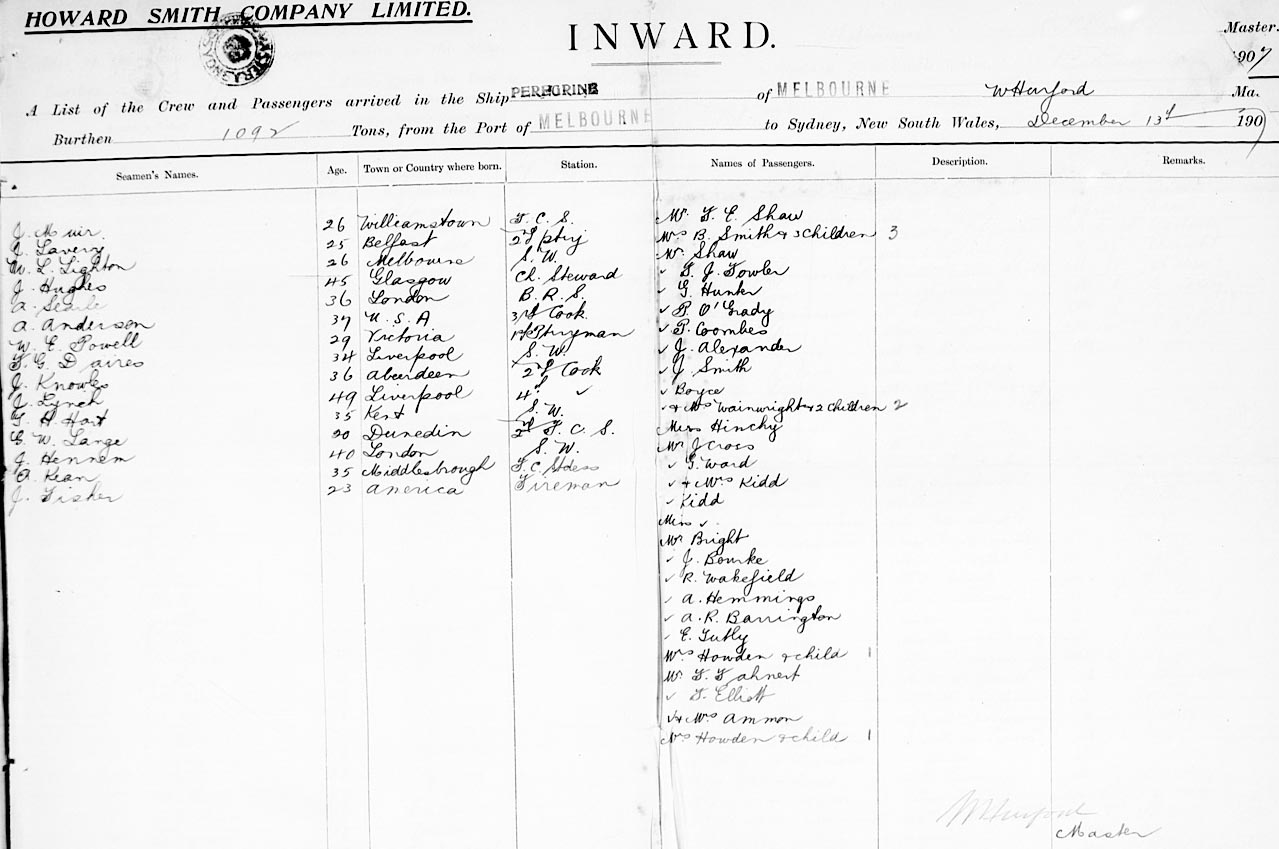 HOWARD SMITH COMPANY LIMITED.
INWARD.
Master.
1907
A List of the Crew and Passengers arrived in the Ship PEREGRINE of MELBOURNE Ma.
Burthen 1092 Tons, from the Port of MELBOURNE to Sydney, New South Wales, December 13th 1907
Seamen's Names. Age. Town or Country where born. Station. Names of Passengers. Description. Remarks.
J. Muir 26 Williamstown F. C. S. Mr F. E. Shaw
J. Lavery 25 Belfast 2nd ptry Mrs B. Smith & 3 children 3
W. L. Lighton 26 Melbourne S. W. Mr Shaw
J. Hughes 45 Glasgow Ch. Steward ✓ F. J. Fowler
A. Searle 36 London B. R. S. ✓ G. Hunter
A. Anderson 37 U. S. A. 3rd Cook ✓ P. O'Grady
W. E. Powell 29 Victoria 1st Ptryman ✓ P. Coombes
F. G. Daires 34 Liverpool S. W. ✓ J. Alexander
J. Knowles 36 Aberdeen 2nd Cook ✓ J. Smith
J. Lynch 49 Liverpool 4th ✓ ✓ Boyce
G. H. Hart 35 Kent S. W. ✓ & Mrs Wainwright & 2 children 2
G. W. Lange 20 Dunedin 2nd F. C. S. Miss Hinchy
J. Hennem 40 London S. W. Mr J Cross
A. Kean 35 Middlesbrough F. C. Stdess ✓ G. Ward
J. Fisher 23 America Fireman ✓ & Mrs Kidd
✓ Kidd
Miss ✓
Mr Bright
✓ J. Bourke
✓ R. Wakefield
✓ A. Hemmings
✓ A. R. Barrington
✓ E.
Mrs Howden & child 1
Mr F. Fahnert
✓ F. Elliott
✓ & Mrs Ammon
Mrs Howden & child 1
Master